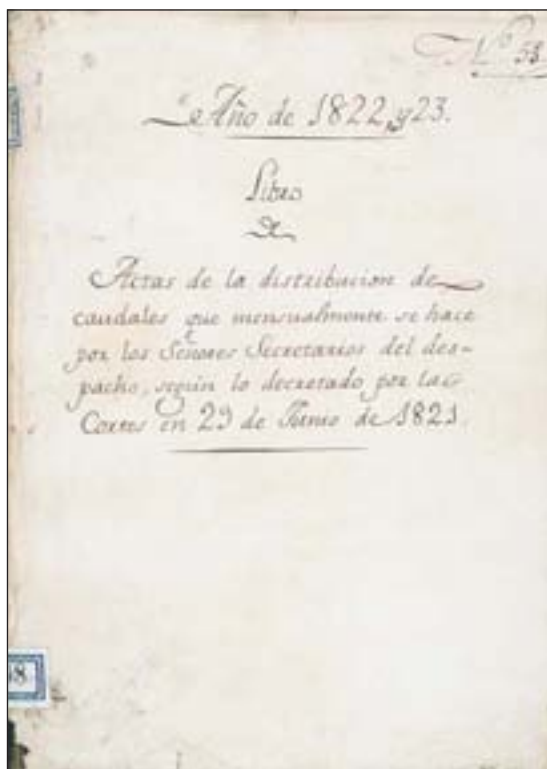 Nº 53
Año de 1822, y 23.
Libro
De
Actas de la distribucion de
caudales que mensualmente se hace
por los Señores Secretarios del des-
pacho, segun lo decretado por las
Cortes en 29 de Junio de 1821.
8